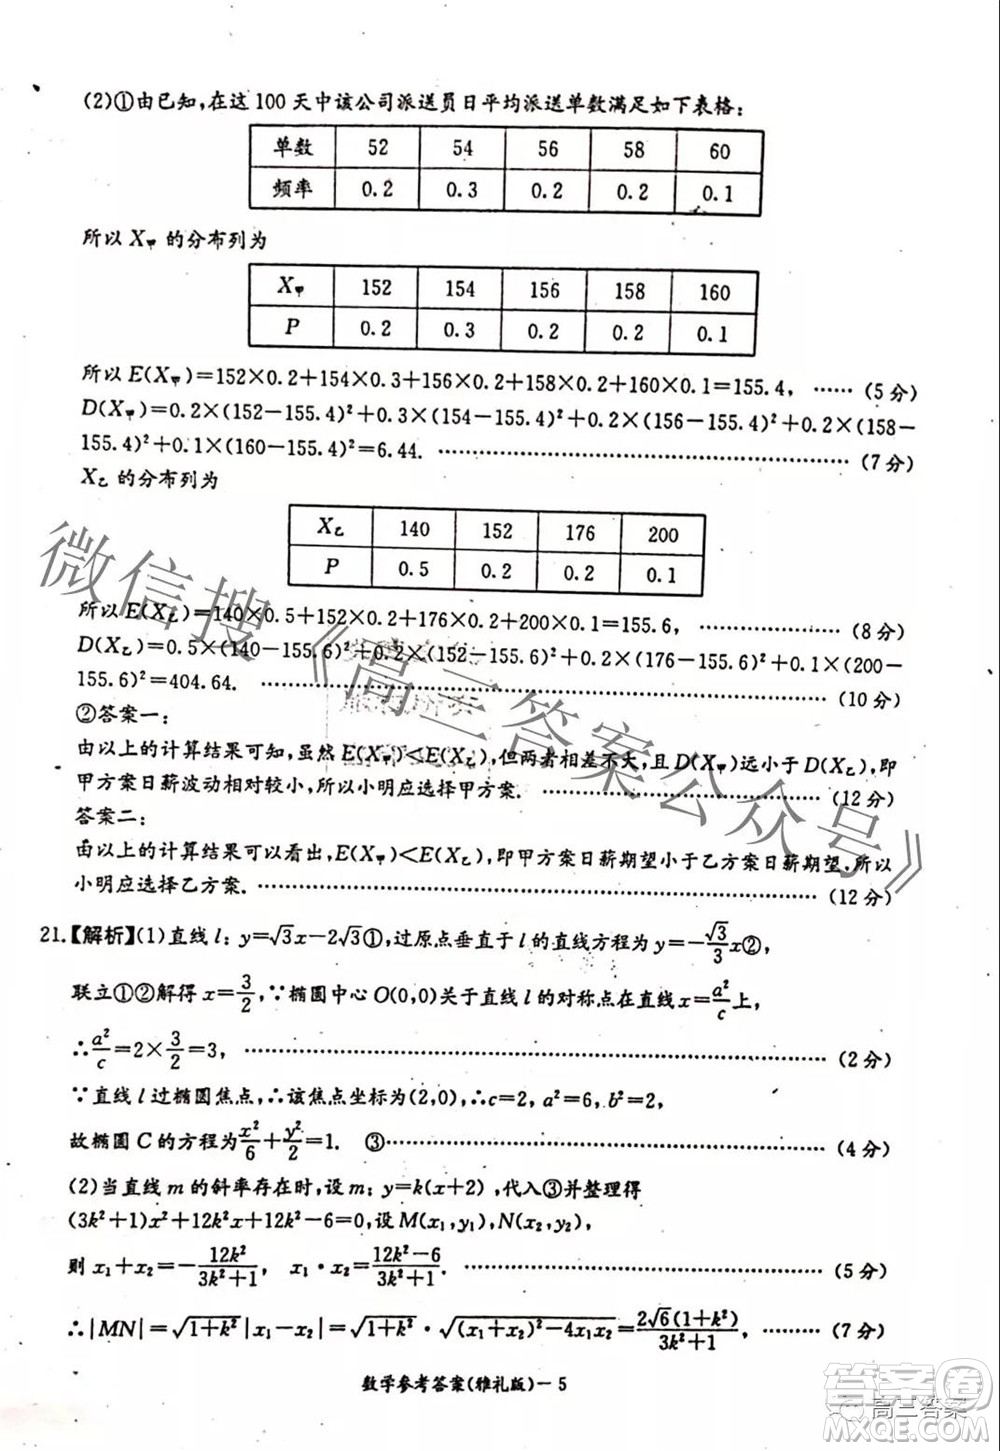 (2)①由已知,在这100天中该公司派送员日平均派送单数满足如下表格:
单数 52 54 56 58 60
频率 0.2 0.3 0.2 0.2 0.1
所以X甲的分布列为
X甲 152 154 156 158 160
P 0.2 0.3 0.2 0.2 0.1
所以E(X甲)=152×0.2+154×0.3+156×0.2+158×0.2+160×0.1=155.4, ……(5分)
D(X甲)=0.2×(152-155.4)²+0.3×(154-155.4)²+0.2×(156-155.4)²+0.2×(158-
155.4)²+0.1×(160-155.4)²=6.44. ……(7分)
X乙的分布列为
X乙 140 152 176 200
P 0.5 0.2 0.2 0.1
所以E(X乙)=140×0.5+152×0.2+176×0.2+200×0.1=155.6, ……(8分)
D(X乙)=0.5×(140-155.6)²+0.2×(152-155.6)²+0.2×(176-155.6)²+0.1×(200-
155.6)²=404.64. ……(10分)
②答案一:
由以上的计算结果可知,虽然E(X甲)<E(X乙),但两者相差不大,且D(X甲)远小于D(X乙),即
甲方案日薪波动相对较小,所以小明应选择甲方案. ……(12分)
答案二:
由以上的计算结果可以看出,E(X甲)<E(X乙),即甲方案日薪期望小于乙方案日薪期望,所以
小明应选择乙方案. ……(12分)
21.【解析】(1)直线l:y=√3x-2√3①,过原点垂直于l的直线方程为y=-√3/3x②,
联立①②解得x=3/2,∵椭圆中心O(0,0)关于直线l的对称点在直线x=a²/c上,
∴a²/c=2×3/2=3, ……(2分)
∵直线l过椭圆焦点,∴该焦点坐标为(2,0),∴c=2,a²=6,b²=2,
故椭圆C的方程为x²/6+y²/2=1. ③……(4分)
(2)当直线m的斜率存在时,设m:y=k(x+2),代入③并整理得
(3k²+1)x²+12k²x+12k²-6=0,设M(x₁,y₁),N(x₂,y₂),
则x₁+x₂=-12k²/(3k²+1), x₁·x₂=(12k²-6)/(3k²+1). ……(5分)
∴|MN|=√(1+k²)|x₁-x₂|=√(1+k²)·√((x₁+x₂)²-4x₁x₂)=2√6(1+k²)/(3k²+1), ……(7分)
数学参考答案(雅礼版)-5
微信搜《高三答案公众号》
答案圈
高三答案
MXQE.COM